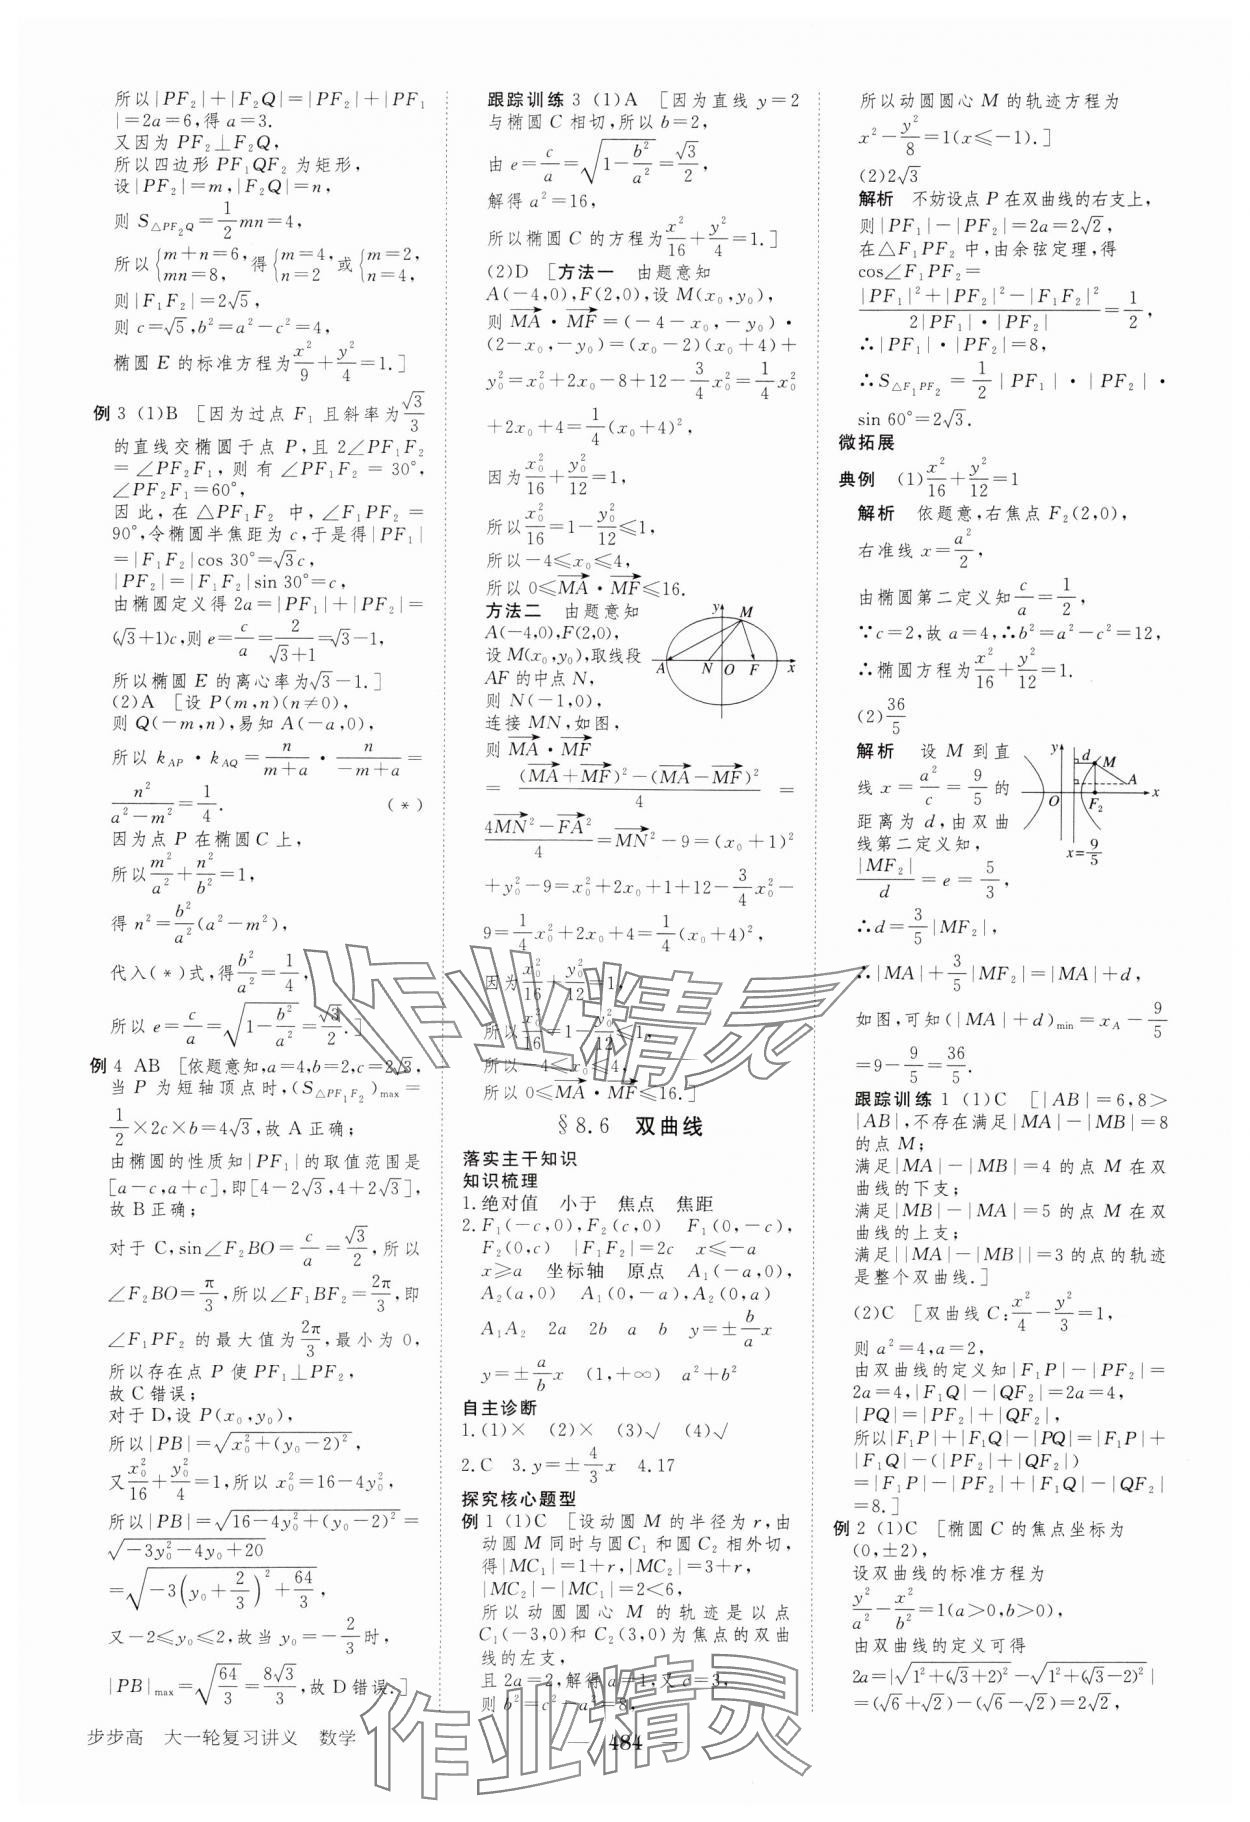 所以|PF₂|+|F₂Q|=|PF₂|+|PF₁
|=2a=6,得 a=3.
又因为 PF₂⊥F₂Q,
所以四边形 PF₁QF₂ 为矩形,
设|PF₂|=m,|F₂Q|=n,
则 S△PF₂Q=1/2 mn=4,
所以{m+n=6, mn=8, 得{m=4, n=2 或{m=2, n=4,
则|F₁F₂|=2√5,
则 c=√5,b²=a²−c²=4,
椭圆 E 的标准方程为x²/9+y²/4=1.]
例 3 (1)B [因为过点 F₁ 且斜率为√3/3
的直线交椭圆于点 P,且 2∠PF₁F₂
=∠PF₂F₁,则有∠PF₁F₂=30°,
∠PF₂F₁=60°,
因此,在△PF₁F₂ 中,∠F₁PF₂=
90°,令椭圆半焦距为 c,于是得|PF₁|
=|F₁F₂|cos 30°=√3c,
|PF₂|=|F₁F₂|sin 30°=c,
由椭圆定义得 2a=|PF₁|+|PF₂|=
(√3+1)c,则 e=c/a=2/(√3+1)=√3−1,
所以椭圆 E 的离心率为√3−1.]
(2)A [设 P(m,n)(n≠0),
则 Q(−m,n),易知 A(−a,0),
所以 k_AP·k_AQ=n/(m+a)·n/(−m+a)=
n²/(a²−m²)=1/4. (*)
因为点 P 在椭圆 C 上,
所以m²/a²+n²/b²=1,
得 n²=b²/a²(a²−m²),
代入(*)式,得b²/a²=1/4,
所以 e=c/a=√(1−b²/a²)=√3/2.]
例 4 AB [依题意知,a=4,b=2,c=2√3,
当 P 为短轴顶点时,(S△PF₁F₂)max=
1/2×2c×b=4√3,故 A 正确;
由椭圆的性质知|PF₁|的取值范围是
[a−c,a+c],即[4−2√3,4+2√3],
故 B 正确;
对于 C,sin∠F₂BO=c/a=√3/2,所以
∠F₂BO=π/3,所以∠F₁BF₂=2π/3,即
∠F₁PF₂ 的最大值为2π/3,最小为 0,
所以存在点 P 使 PF₁⊥PF₂,
故 C 错误;
对于 D,设 P(x₀,y₀),
所以|PB|=√(x₀²+(y₀−2)²),
又x₀²/16+y₀²/4=1,所以 x₀²=16−4y₀²,
所以|PB|=√(16−4y₀²+(y₀−2)²)=
√(−3y₀²−4y₀+20)
=√(−3(y₀+2/3)²+64/3),
又−2≤y₀≤2,故当 y₀=−2/3时,
|PB|max=√(64/3)=8√3/3,故 D 错误.]
跟踪训练 3 (1)A [因为直线 y=2
与椭圆 C 相切,所以 b=2,
由 e=c/a=√(1−b²/a²)=√3/2,
解得 a²=16,
所以椭圆 C 的方程为x²/16+y²/4=1.]
(2)D [方法一 由题意知
A(−4,0),F(2,0),设 M(x₀,y₀),
则 MA→·MF→=(−4−x₀,−y₀)·
(2−x₀,−y₀)=(x₀−2)(x₀+4)+
y₀²=x₀²+2x₀−8+12−3/4x₀²=1/4x₀²
+2x₀+4=1/4(x₀+4)²,
因为x₀²/16+y₀²/12=1,
所以x₀²/16=1−y₀²/12≤1,
所以−4≤x₀≤4,
所以 0≤MA→·MF→≤16.
方法二 由题意知
A(−4,0),F(2,0),
设 M(x₀,y₀),取线段
AF 的中点 N,
则 N(−1,0),
连接 MN,如图,
y M A N O F x
则 MA→·MF→
=((MA→+MF→)²−(MA→−MF→)²)/4=
(4MN→²−FA→²)/4=MN→²−9=(x₀+1)²
+y₀²−9=x₀²+2x₀+1+12−3/4x₀²−
9=1/4x₀²+2x₀+4=1/4(x₀+4)²,
因为x₀²/16+y₀²/12=1,
所以x₀²/16=1−y₀²/12≤1,
所以−4≤x₀≤4,
所以 0≤MA→·MF→≤16.]
§8.6 双曲线
落实主干知识
知识梳理
1.绝对值 小于 焦点 焦距
2.F₁(−c,0),F₂(c,0) F₁(0,−c),
F₂(0,c) |F₁F₂|=2c x≤−a
x≥a 坐标轴 原点 A₁(−a,0),
A₂(a,0) A₁(0,−a),A₂(0,a)
A₁A₂ 2a 2b a b y=±b/a x
y=±a/b x (1,+∞) a²+b²
自主诊断
1.(1)× (2)× (3)√ (4)√
2.C 3.y=±4/3 x 4.17
探究核心题型
例 1 (1)C [设动圆 M 的半径为 r,由
动圆 M 同时与圆C₁ 和圆 C₂ 相外切,
得|MC₁|=1+r,|MC₂|=3+r,
|MC₂|−|MC₁|=2<6,
所以动圆圆心 M 的轨迹是以点
C₁(−3,0)和 C₂(3,0)为焦点的双曲
线的左支,
且 2a=2,解得 a=1,又 c=3,
则 b²=c²−a²=8,
所以动圆圆心 M 的轨迹方程为
x²−y²/8=1(x≤−1).]
(2)2√3
解析 不妨设点 P 在双曲线的右支上,
则|PF₁|−|PF₂|=2a=2√2,
在△F₁PF₂ 中,由余弦定理,得
cos∠F₁PF₂=
(|PF₁|²+|PF₂|²−|F₁F₂|²)/(2|PF₁|·|PF₂|)=1/2,
∴|PF₁|·|PF₂|=8,
∴S△F₁PF₂=1/2|PF₁|·|PF₂|·
sin 60°=2√3.
微拓展
典例 (1)x²/16+y²/12=1
解析 依题意,右焦点 F₂(2,0),
右准线 x=a²/2,
由椭圆第二定义知c/a=1/2,
∵c=2,故 a=4,∴b²=a²−c²=12,
∴椭圆方程为x²/16+y²/12=1.
(2)36/5
解析 设 M 到直
线 x=a²/c=9/5 的
距离为 d,由双曲
线第二定义知,
y d M A O F₂ x x=9/5
|MF₂|/d=e=5/3,
∴d=3/5|MF₂|,
∴|MA|+3/5|MF₂|=|MA|+d,
如图,可知(|MA|+d)min=x_A−9/5
=9−9/5=36/5.
跟踪训练 1 (1)C [|AB|=6,8>
|AB|,不存在满足|MA|−|MB|=8
的点 M;
满足|MA|−|MB|=4 的点 M 在双
曲线的下支;
满足|MB|−|MA|=5 的点 M 在双
曲线的上支;
满足||MA|−|MB||=3 的点的轨迹
是整个双曲线.]
(2)C [双曲线 C:x²/4−y²/3=1,
则 a²=4,a=2,
由双曲线的定义知|F₁P|−|PF₂|=
2a=4,|F₁Q|−|QF₂|=2a=4,
|PQ|=|PF₂|+|QF₂|,
所以|F₁P|+|F₁Q|−|PQ|=|F₁P|+
|F₁Q|−(|PF₂|+|QF₂|)
=|F₁P|−|PF₂|+|F₁Q|−|QF₂|
=8.]
例 2 (1)C [椭圆 C 的焦点坐标为
(0,±2),
设双曲线的标准方程为
y²/a²−x²/b²=1(a>0,b>0),
由双曲线的定义可得
2a=|√(1²+(√3+2)²)−√(1²+(√3−2)²)|
=(√6+√2)−(√6−√2)=2√2,
步步高 大一轮复习讲义 数学
— 484 —
作业精灵
作业精灵